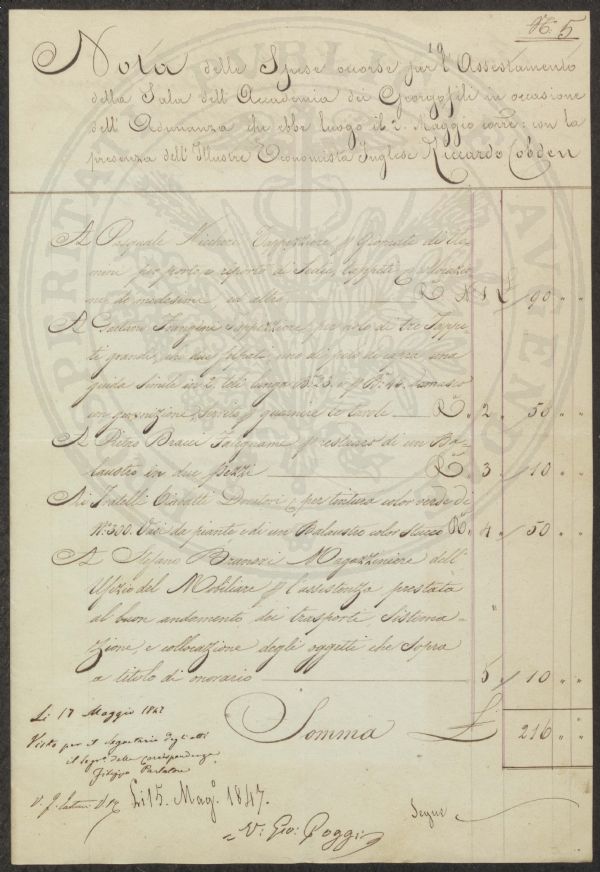 N: 5
Nota delle Spese occorse per l'Assestamento
della Sala dell'Accademia dei Georgofili in occasione
dell'Adunanza che ebbe luogo il 2. Maggio corr.e: con la
presenza dell'Illustre Economista Inglese Riccardo Cobden
A Pasquale Tappezziere p Giornate di
per porto, e riporto di Sedie, Tappeti, e
ne de medesimi, ed altro R. N. 1 £ 90 " "
A Gaetano Frangini Tappezziere per nolo di tre Tappe-
ti grandi, un
guida simile in 2. teli lunga B. 23. e p B. 46.
un guarnizione p guarnire le tavole R. 2 / 50 " "
A Pietro Bracci Falegname p restauro di un Ba-
laustro in due pezzi R. 3 / 10 " "
Ai Fratelli Doratori per tintura color verde di
N. 300. Vasi da piante e di un Balaustro color Stucco R. 4 / 50 " "
A Stefano Magazziniere dell'
Ufizio del Mobiliare p l'assistenza prestata
al buon andamento dei trasporti, sistema-
zione, e collocazione degli oggetti che sopra
a titolo di onorario 5 / 10 " "
Somma £ 216 " "
Li 17 Maggio 1847
Visto per il Segretario degli atti
il Segr.o delle Corrispondenze
Filippo Parlatore
Li 15. Mag.o 1847.
V. Gio: Poggi
Segue